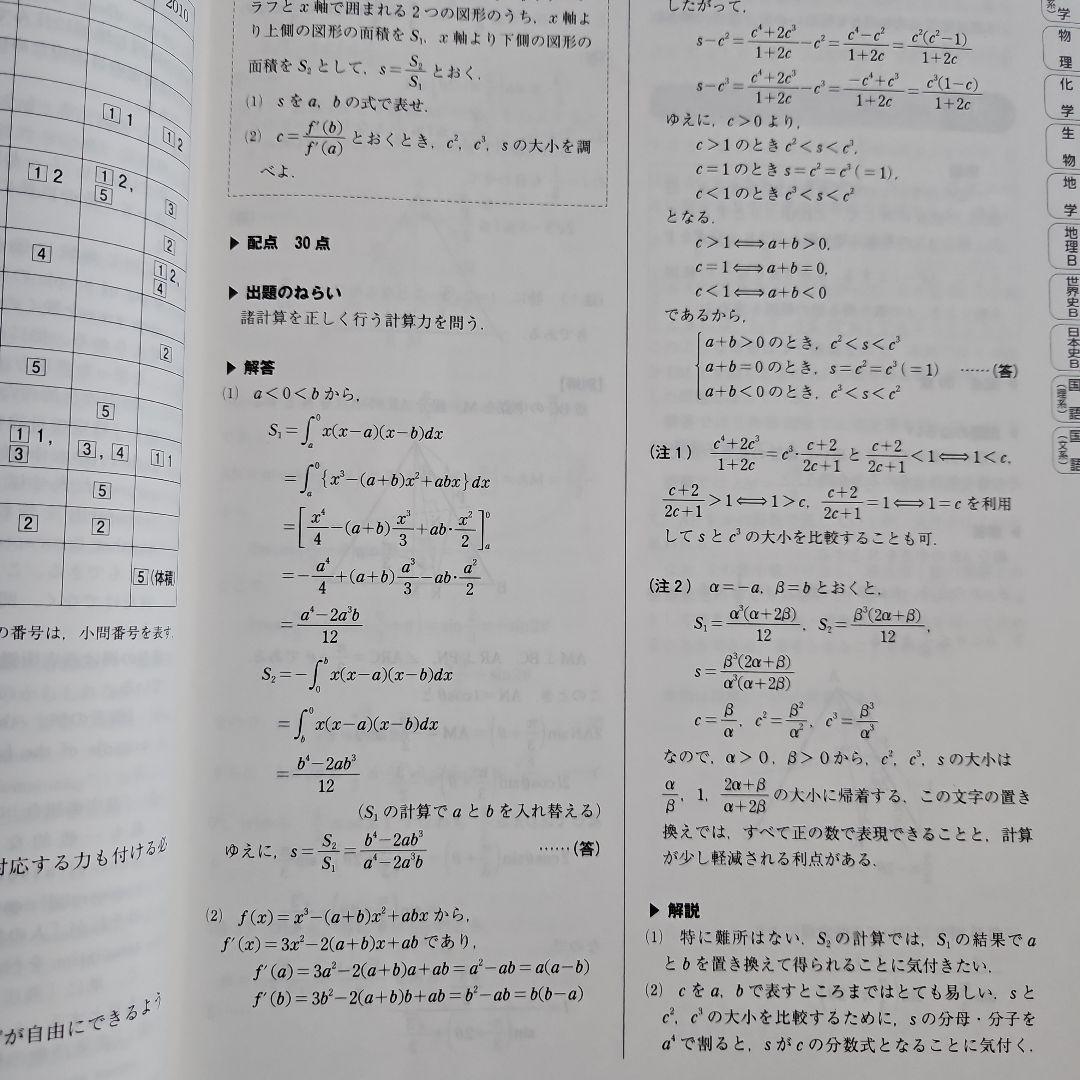 2010
1 1
1 2
1 2
1 2,
5
3
4
2
1 2,
4
5
2
5
1 1,
3
3, 4
1 1
5
2
2
5(体積)
の番号は，小問番号を表す.
対応する力も付ける必
が自由にできるよう
ラフと x 軸で囲まれる 2 つの図形のうち，x 軸よ
り上側の図形の面積を S₁，x 軸より下側の図形の
面積を S₂ として，s=S₂/S₁ とおく.
(1) s を a，b の式で表せ.
(2) c=f′(b)/f′(a) とおくとき，c²，c³，s の大小を調
べよ.
▶ 配点 30 点
▶ 出題のねらい
諸計算を正しく行う計算力を問う.
▶ 解答
(1) a<0<b から，
S₁=∫ₐ⁰ x(x−a)(x−b)dx
=∫ₐ⁰ {x³−(a+b)x²+abx}dx
=[x⁴/4−(a+b)x³/3+ab·x²/2]ₐ⁰
=−a⁴/4+(a+b)a³/3−ab·a²/2
=(a⁴−2a³b)/12
S₂=−∫₀ᵇ x(x−a)(x−b)dx
=∫_b⁰ x(x−a)(x−b)dx
=(b⁴−2ab³)/12
(S₁ の計算で a と b を入れ替える)
ゆえに，s=S₂/S₁=(b⁴−2ab³)/(a⁴−2a³b) ……(答)
(2) f(x)=x³−(a+b)x²+abx から，
f′(x)=3x²−2(a+b)x+ab であり，
f′(a)=3a²−2(a+b)a+ab=a²−ab=a(a−b)
f′(b)=3b²−2(a+b)b+ab=b²−ab=b(b−a)
したがって，
s−c²=(c⁴+2c³)/(1+2c)−c²=(c⁴−c²)/(1+2c)=c²(c²−1)/(1+2c)
s−c³=(c⁴+2c³)/(1+2c)−c³=(−c⁴+c³)/(1+2c)=c³(1−c)/(1+2c)
ゆえに，c>0 より，
c>1 のとき c²<s<c³，
c=1 のとき s=c²=c³(=1)，
c<1 のとき c³<s<c²
となる.
c>1⟺a+b>0，
c=1⟺a+b=0，
c<1⟺a+b<0
であるから，
a+b>0 のとき，c²<s<c³
a+b=0 のとき，s=c²=c³(=1) ……(答)
a+b<0 のとき，c³<s<c²
(注1) (c⁴+2c³)/(1+2c)=c³·(c+2)/(2c+1) と (c+2)/(2c+1)<1⟺1<c，
(c+2)/(2c+1)>1⟺1>c，(c+2)/(2c+1)=1⟺1=c を利用
して s と c³ の大小を比較することも可.
(注2) α=−a，β=b とおくと，
S₁=α³(α+2β)/12，S₂=β³(2α+β)/12，
s=β³(2α+β)/α³(α+2β)
c=β/α，c²=β²/α²，c³=β³/α³
なので，α>0，β>0 から，c²，c³，s の大小は
α/β，1，(2α+β)/(α+2β) の大小に帰着する．この文字の置き
換えでは，すべて正の数で表現できることと，計算
が少し軽減される利点がある．
▶ 解説
(1) 特に難所はない．S₂ の計算では，S₁ の結果で a
と b を置き換えて得られることに気付きたい．
(2) c を a，b で表すところまではとても易しい．s と
c²，c³ の大小を比較するために，s の分母・分子を
a⁴ で割ると，s が c の分数式となることに気付く．
系)
学
物理
化学
生物
地学
地理B
世界史B
日本史B
国語(理系)
国語(文系)